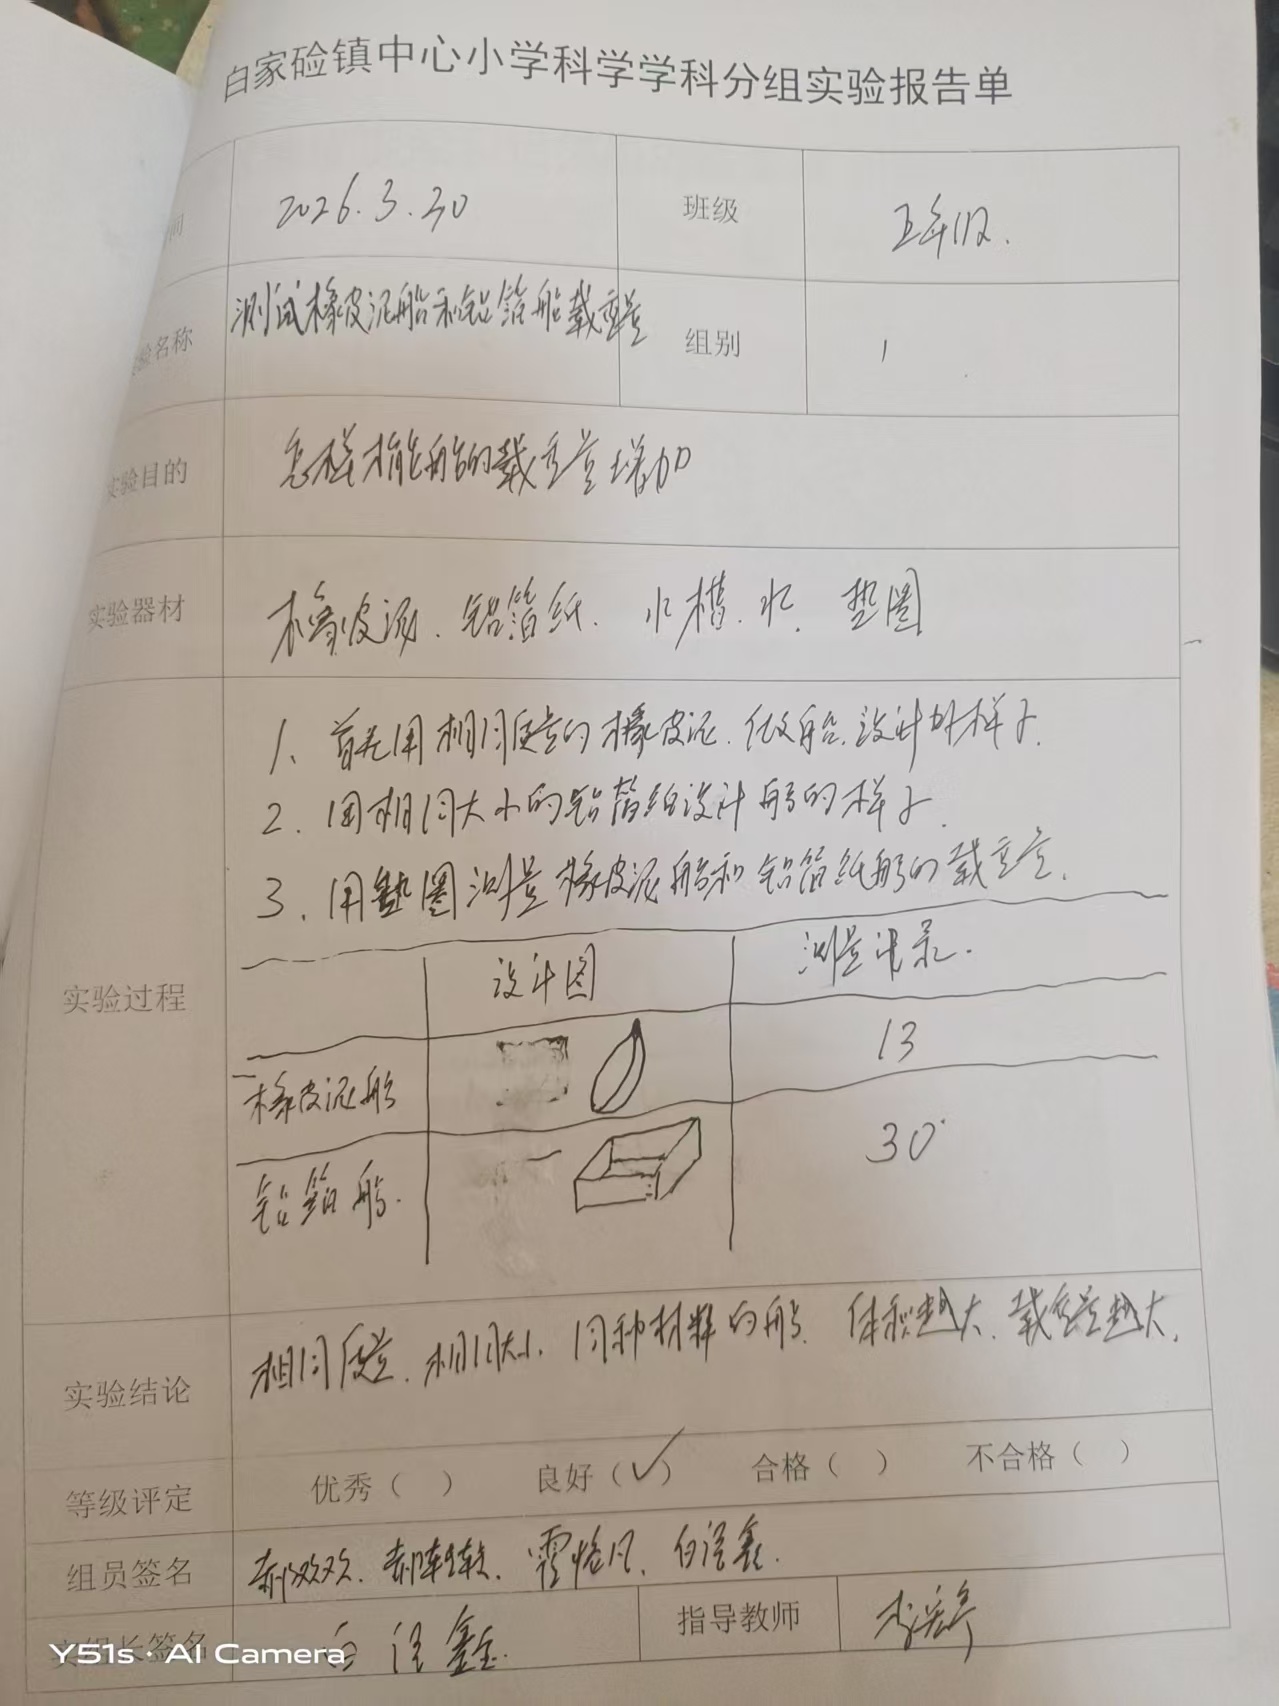 白家硷镇中心小学科学学科分组实验报告单
间 2026.3.30 班级 五年级.
验名称 测试橡皮泥船和铝箔船载重量 组别 1
实验目的 怎样才能船的载重量增加
实验器材 橡皮泥. 铝箔纸. 水槽. 水. 垫圈
1. 首先用相同质量的橡皮泥.做船.设计好样子.
2. 用相同大小的铝箔纸设计船的样子.
3. 用垫圈测量橡皮泥船和铝箔纸船的载重量.
实验过程
设计图 测量记录.
橡皮泥船 13
铝箔船. 30
实验结论 相同质量.相同大小.同种材料的船.体积越大.载重量越大.
等级评定 优秀（ ） 良好（✓） 合格（ ） 不合格（ ）
组员签名 郝欢欢.
组长签名 鑫. 指导教师
Y51s · AI Camera